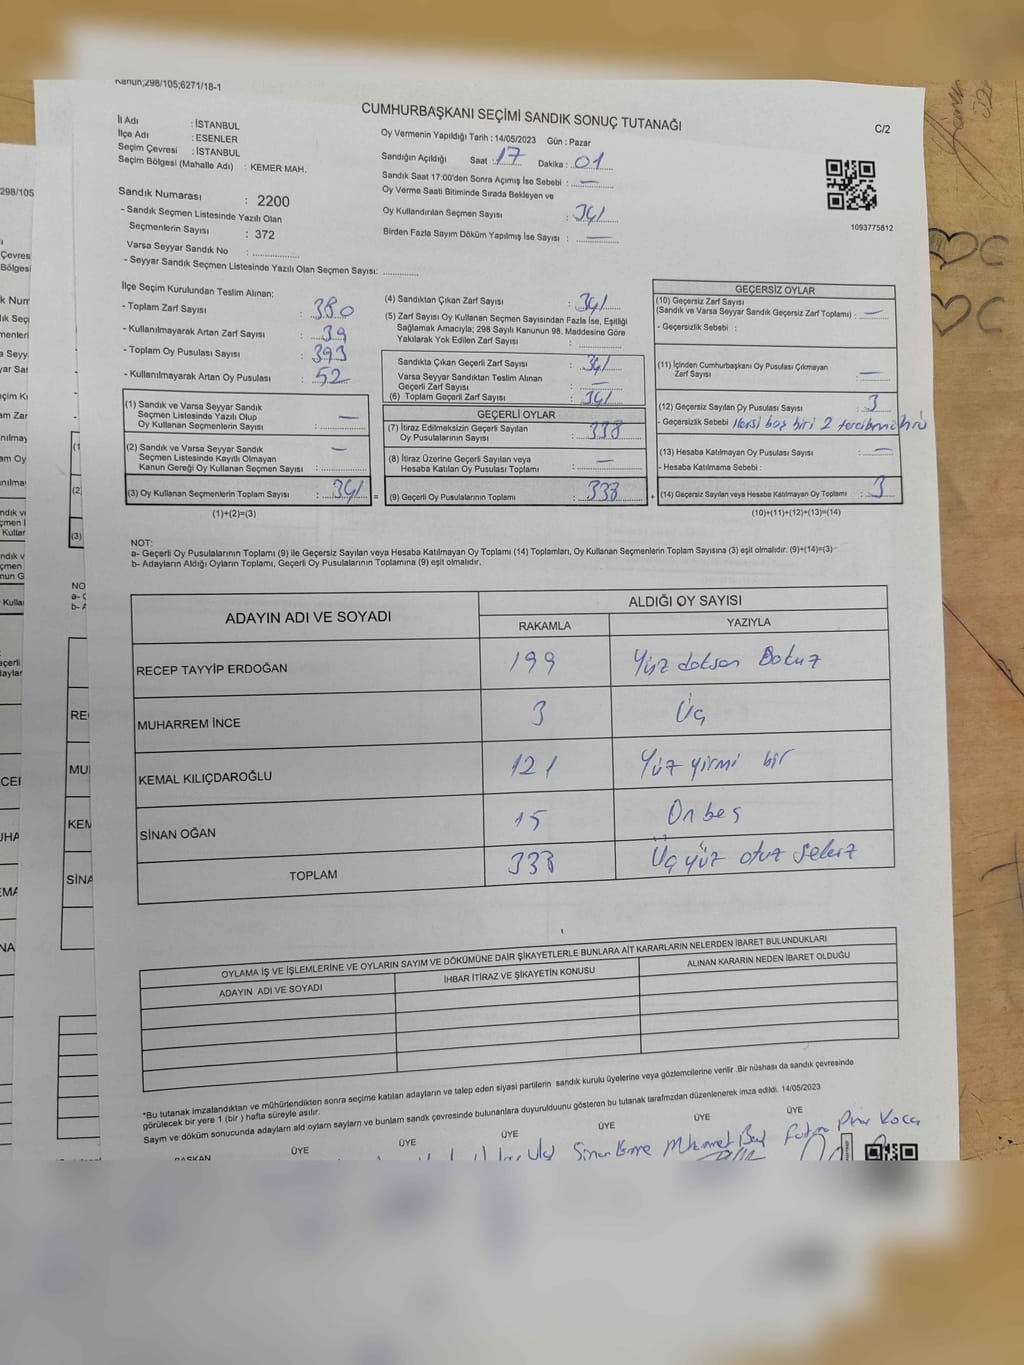 Kanun;298/105;6271/18-1
CUMHURBAŞKANI SEÇİMİ SANDIK SONUÇ TUTANAĞI
C/2
İl Adı : İSTANBUL
İlçe Adı : ESENLER
Seçim Çevresi : İSTANBUL
Seçim Bölgesi (Mahalle Adı) : KEMER MAH.
Sandık Numarası : 2200
- Sandık Seçmen Listesinde Yazılı Olan
Seçmenlerin Sayısı : 372
Varsa Seyyar Sandık No :
- Seyyar Sandık Seçmen Listesinde Yazılı Olan Seçmen Sayısı:
Oy Vermenin Yapıldığı Tarih : 14/05/2023 Gün : Pazar
Sandığın Açıldığı Saat : 17 Dakika : 01
Sandık Saat 17:00'den Sonra Açımış İse Sebebi : —
Oy Verme Saati Bitiminde Sırada Bekleyen ve
Oy Kullandırılan Seçmen Sayısı : 341
Birden Fazla Sayım Döküm Yapılmış İse Sayısı : —
1093775812
İlçe Seçim Kurulundan Teslim Alınan;
- Toplam Zarf Sayısı : 380
- Kullanılmayarak Artan Zarf Sayısı : 39
- Toplam Oy Pusulası Sayısı : 393
- Kullanılmayarak Artan Oy Pusulası : 52
(1) Sandık ve Varsa Seyyar Sandık
Seçmen Listesinde Yazılı Olup
Oy Kullanan Seçmenlerin Sayısı : —
(2) Sandık ve Varsa Seyyar Sandık
Seçmen Listesinde Kayıtlı Olmayan
Kanun Gereği Oy Kullanan Seçmen Sayısı : —
(3) Oy Kullanan Seçmenlerin Toplam Sayısı : 341 =
(1)+(2)=(3)
(4) Sandıktan Çıkan Zarf Sayısı : 341
(5) Zarf Sayısı Oy Kullanan Seçmen Sayısından Fazla İse, Eşitliği
Sağlamak Amacıyla; 298 Sayılı Kanunun 98. Maddesine Göre
Yakılarak Yok Edilen Zarf Sayısı :
Sandıkta Çıkan Geçerli Zarf Sayısı : 341
Varsa Seyyar Sandıktan Teslim Alınan
Geçerli Zarf Sayısı : —
(6) Toplam Geçerli Zarf Sayısı : 341
GEÇERLİ OYLAR
(7) İtiraz Edilmeksizin Geçerli Sayılan
Oy Pusulalarının Sayısı : 338
(8) İtiraz Üzerine Geçerli Sayılan veya
Hesaba Katılan Oy Pusulası Toplamı : —
(9) Geçerli Oy Pusulalarının Toplamı : 338 +
GEÇERSİZ OYLAR
(10) Geçersiz Zarf Sayısı
(Sandık ve Varsa Seyyar Sandık Geçersiz Zarf Toplamı) : —
- Geçersizlik Sebebi :
(11) İçinden Cumhurbaşkanı Oy Pusulası Çıkmayan
Zarf Sayısı : —
(12) Geçersiz Sayılan Oy Pusulası Sayısı : 3
- Geçersizlik Sebebi
(13) Hesaba Katılmayan Oy Pusulası Sayısı : —
- Hesaba Katılmama Sebebi :
(14) Geçersiz Sayılan veya Hesaba Katılmayan Oy Toplamı : 3
(10)+(11)+(12)+(13)=(14)
NOT:
a- Geçerli Oy Pusulalarının Toplamı (9) ile Geçersiz Sayılan veya Hesaba Katılmayan Oy Toplamı (14) Toplamları, Oy Kullanan Seçmenlerin Toplam Sayısına (3) eşit olmalıdır. (9)+(14)=(3)
b- Adayların Aldığı Oyların Toplamı, Geçerli Oy Pusulalarının Toplamına (9) eşit olmalıdır.
ADAYIN ADI VE SOYADI
ALDIĞI OY SAYISI
RAKAMLA YAZIYLA
RECEP TAYYİP ERDOĞAN 199 Yüz doksan Dokuz
MUHARREM İNCE 3 Üç
KEMAL KILIÇDAROĞLU 121 Yüz yirmi bir
SİNAN OĞAN 15 On beş
TOPLAM 338 Üç yüz otuz sekiz
OYLAMA İŞ VE İŞLEMLERİNE VE OYLARIN SAYIM VE DÖKÜMÜNE DAİR ŞİKAYETLERLE BUNLARA AİT KARARLARIN NELERDEN İBARET BULUNDUKLARI
ADAYIN ADI VE SOYADI
İHBAR İTİRAZ VE ŞİKAYETİN KONUSU
ALINAN KARARIN NEDEN İBARET OLDUĞU
*Bu tutanak imzalandıktan ve mühürlendikten sonra seçime katılan adayların ve talep eden siyasi partilerin sandık kurulu üyelerine veya gözlemcilerine verilir .Bir nüshası da sandık çevresinde
görülecek bir yere 1 (bir ) hafta süreyle asılır.
Sayım ve döküm sonucunda adayların ald oyların sayıları ve bunların sandk çevresinde bulunanlara duyurulduunu gösteren bu tutanak tarafmzdan düzenlenerek imza edildi. 14/05/2023
BAŞKAN ÜYE ÜYE ÜYE ÜYE ÜYE ÜYE